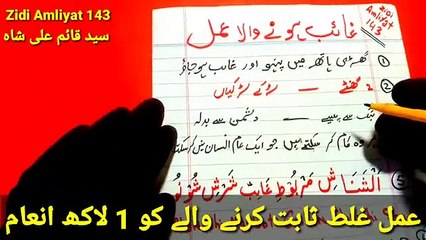 Zidi Amliyat 143
سید قائم علی شاہ
Zidi
Amliyat
143
غائب ہونے والا عمل
① گھڑی ہاتھ میں پہنو اور غائب ہو جاؤ
② 2 گھنٹے — لڑکے لڑکیاں
بنک سے پیسے — دشمن سے بدلہ
وہ کام کر سکتے ہیں جو ایک عام انسان نہیں کر سکتا
③
عمل غلط ثابت کرنے والے کو 1 لاکھ انعام